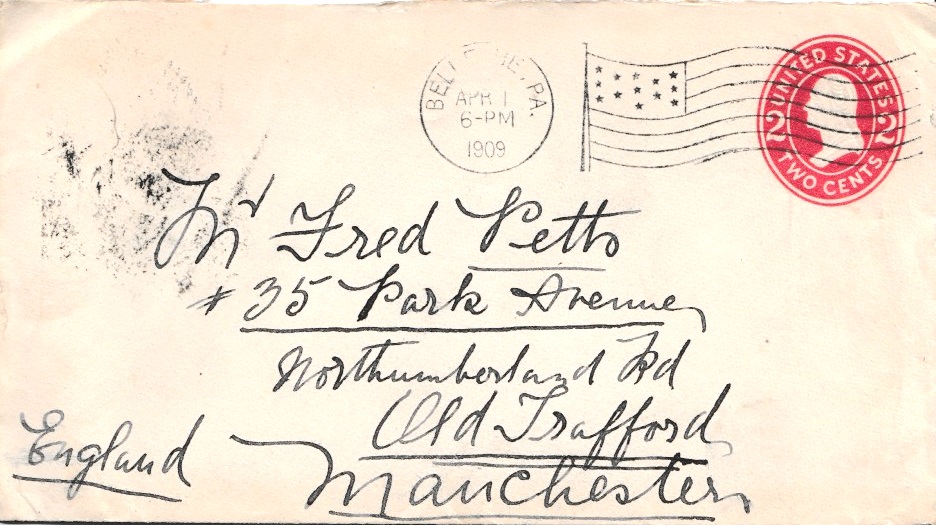 UNITED STATES
2 2
TWO CENTS
PA.
APR 1
6-PM
1909
Mr Fred Petts
# 35 Park Avenue
Northumberland Rd
Old Trafford
Manchester
England